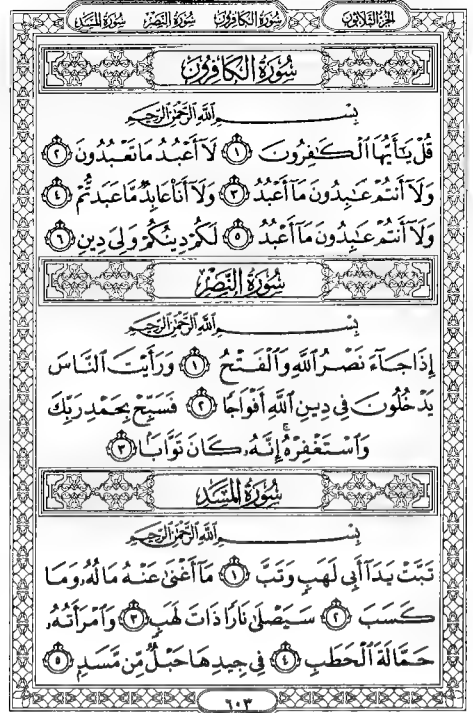 الجزء الثلاثون
سورة الكافرون سورة النصر سورة المسد
سُورَةُ الْكَافِرُونَ
بِسْمِ اللَّهِ الرَّحْمَٰنِ الرَّحِيمِ
قُلْ يَـٰٓأَيُّهَا ٱلْكَـٰفِرُونَ ١ لَآ أَعْبُدُ مَا تَعْبُدُونَ ٢
وَلَآ أَنتُمْ عَـٰبِدُونَ مَآ أَعْبُدُ ٣ وَلَآ أَنَا۠ عَابِدٌ مَّا عَبَدتُّمْ ٤
وَلَآ أَنتُمْ عَـٰبِدُونَ مَآ أَعْبُدُ ٥ لَكُمْ دِينُكُمْ وَلِىَ دِينِ ٦
سُورَةُ النَّصْرِ
بِسْمِ اللَّهِ الرَّحْمَٰنِ الرَّحِيمِ
إِذَا جَآءَ نَصْرُ ٱللَّهِ وَٱلْفَتْحُ ١ وَرَأَيْتَ ٱلنَّاسَ
يَدْخُلُونَ فِى دِينِ ٱللَّهِ أَفْوَاجًا ٢ فَسَبِّحْ بِحَمْدِ رَبِّكَ
وَٱسْتَغْفِرْهُ ۚ إِنَّهُۥ كَانَ تَوَّابًۢا ٣
سُورَةُ الْمَسَدِ
بِسْمِ اللَّهِ الرَّحْمَٰنِ الرَّحِيمِ
تَبَّتْ يَدَآ أَبِى لَهَبٍ وَتَبَّ ١ مَآ أَغْنَىٰ عَنْهُ مَالُهُۥ وَمَا
كَسَبَ ٢ سَيَصْلَىٰ نَارًا ذَاتَ لَهَبٍ ٣ وَٱمْرَأَتُهُۥ
حَمَّالَةَ ٱلْحَطَبِ ٤ فِى جِيدِهَا حَبْلٌ مِّن مَّسَدٍۭ ٥
٦٠٣